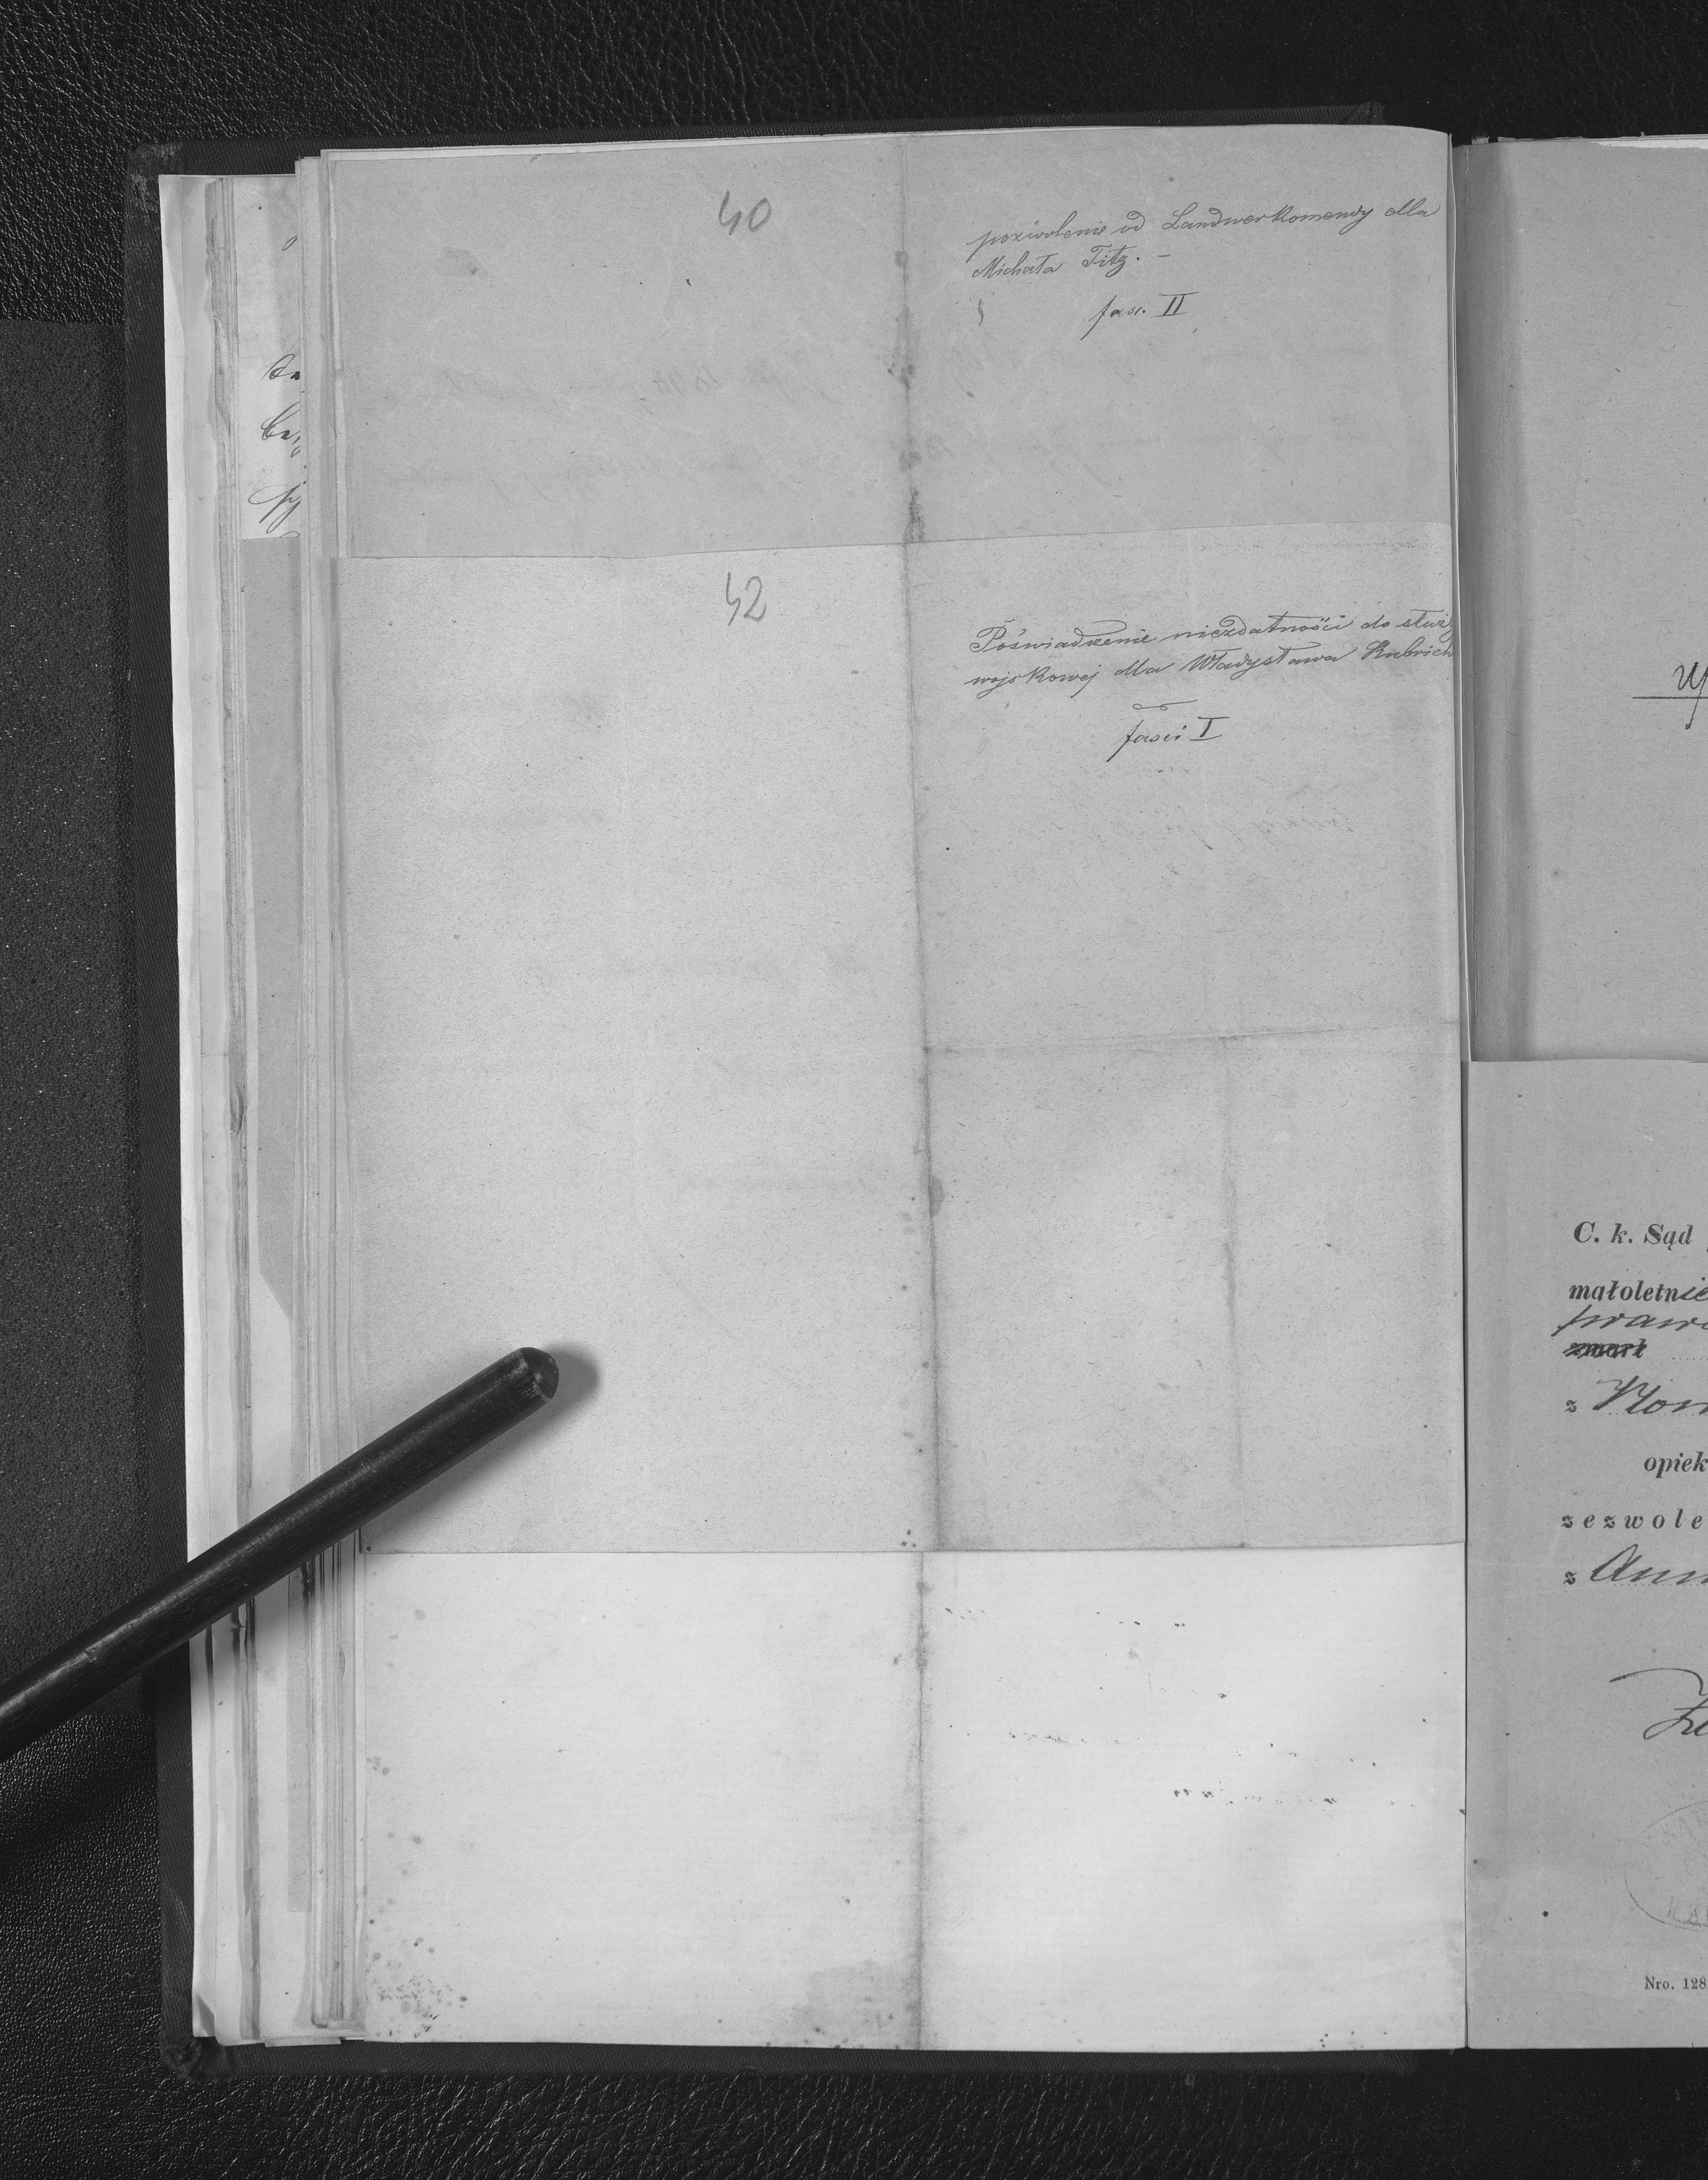 40
pozwolenie od Landwerkomendy dla
Michała Titz. -
fasc. II
42
Poświadczenie niezdatności do służ
wojskowej dla Władysława Kubrich
fasci I
C. k. Sąd
małoletnie
zmarł
z
opiek
zezwole
z Ann
Nro. 128